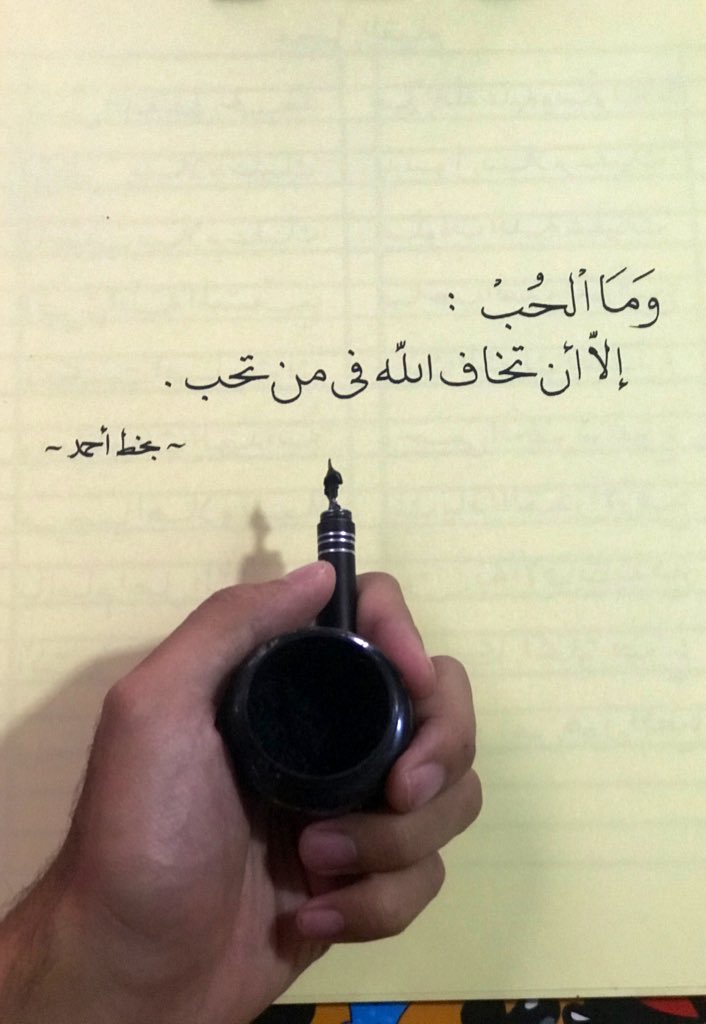 وَمَا ٱلْحُبْ :
إلاّ أن تخاف اللّه فى من تحب .
~ بخط أحمد ~